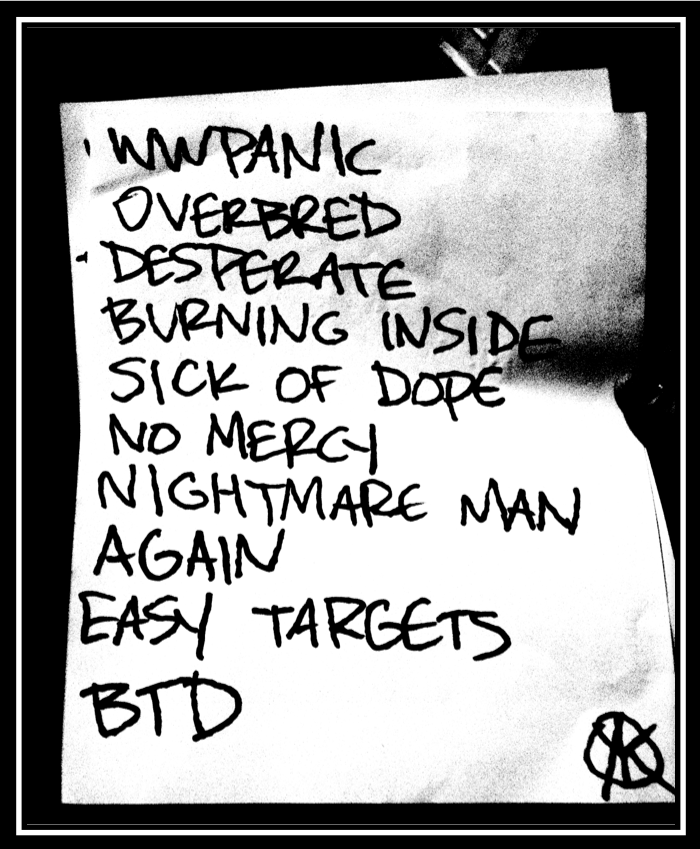 WWPANIC
OVERBRED
DESPERATE
BURNING INSIDE
SICK OF DOPE
NO MERCY
NIGHTMARE MAN
AGAIN
EASY TARGETS
BTD